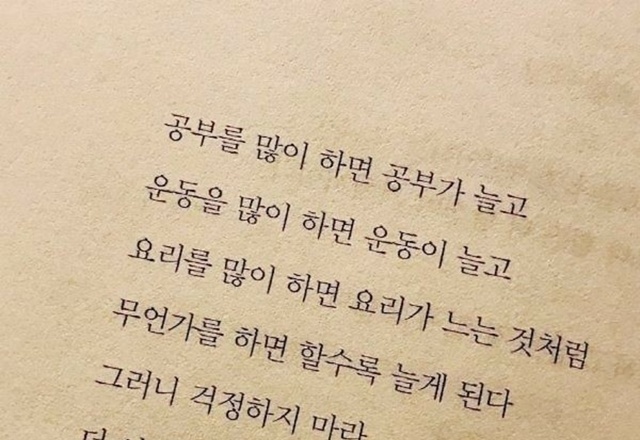 공부를 많이 하면 공부가 늘고
운동을 많이 하면 운동이 늘고
요리를 많이 하면 요리가 느는 것처럼
무언가를 하면 할수록 늘게 된다
그러니 걱정하지 마라